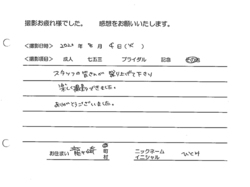 撮影お疲れ様でした。 感想をお願いいたします。
<撮影日時> 2020年 8月 4日(火)
<撮影目的> 成人 七五三 ブライダル 記念 その他
スタッフの皆さんが 盛り上げて下さり
楽しく撮影ができました。
ありがとうございました。
お住まい 龍ヶ崎 ニックネーム イニシャル ひとみ